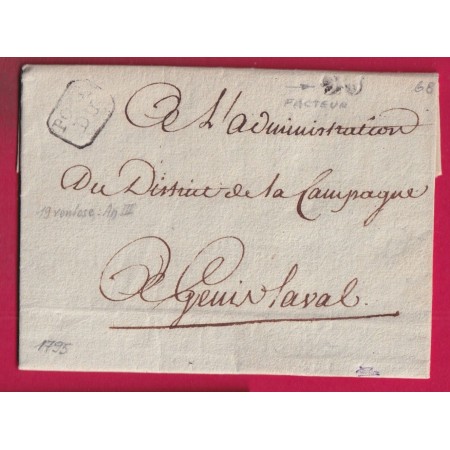 68
→
FACTEUR
A L'administration
Du District de la Campagne
19 ventose An III
A Genis Laval.
1795